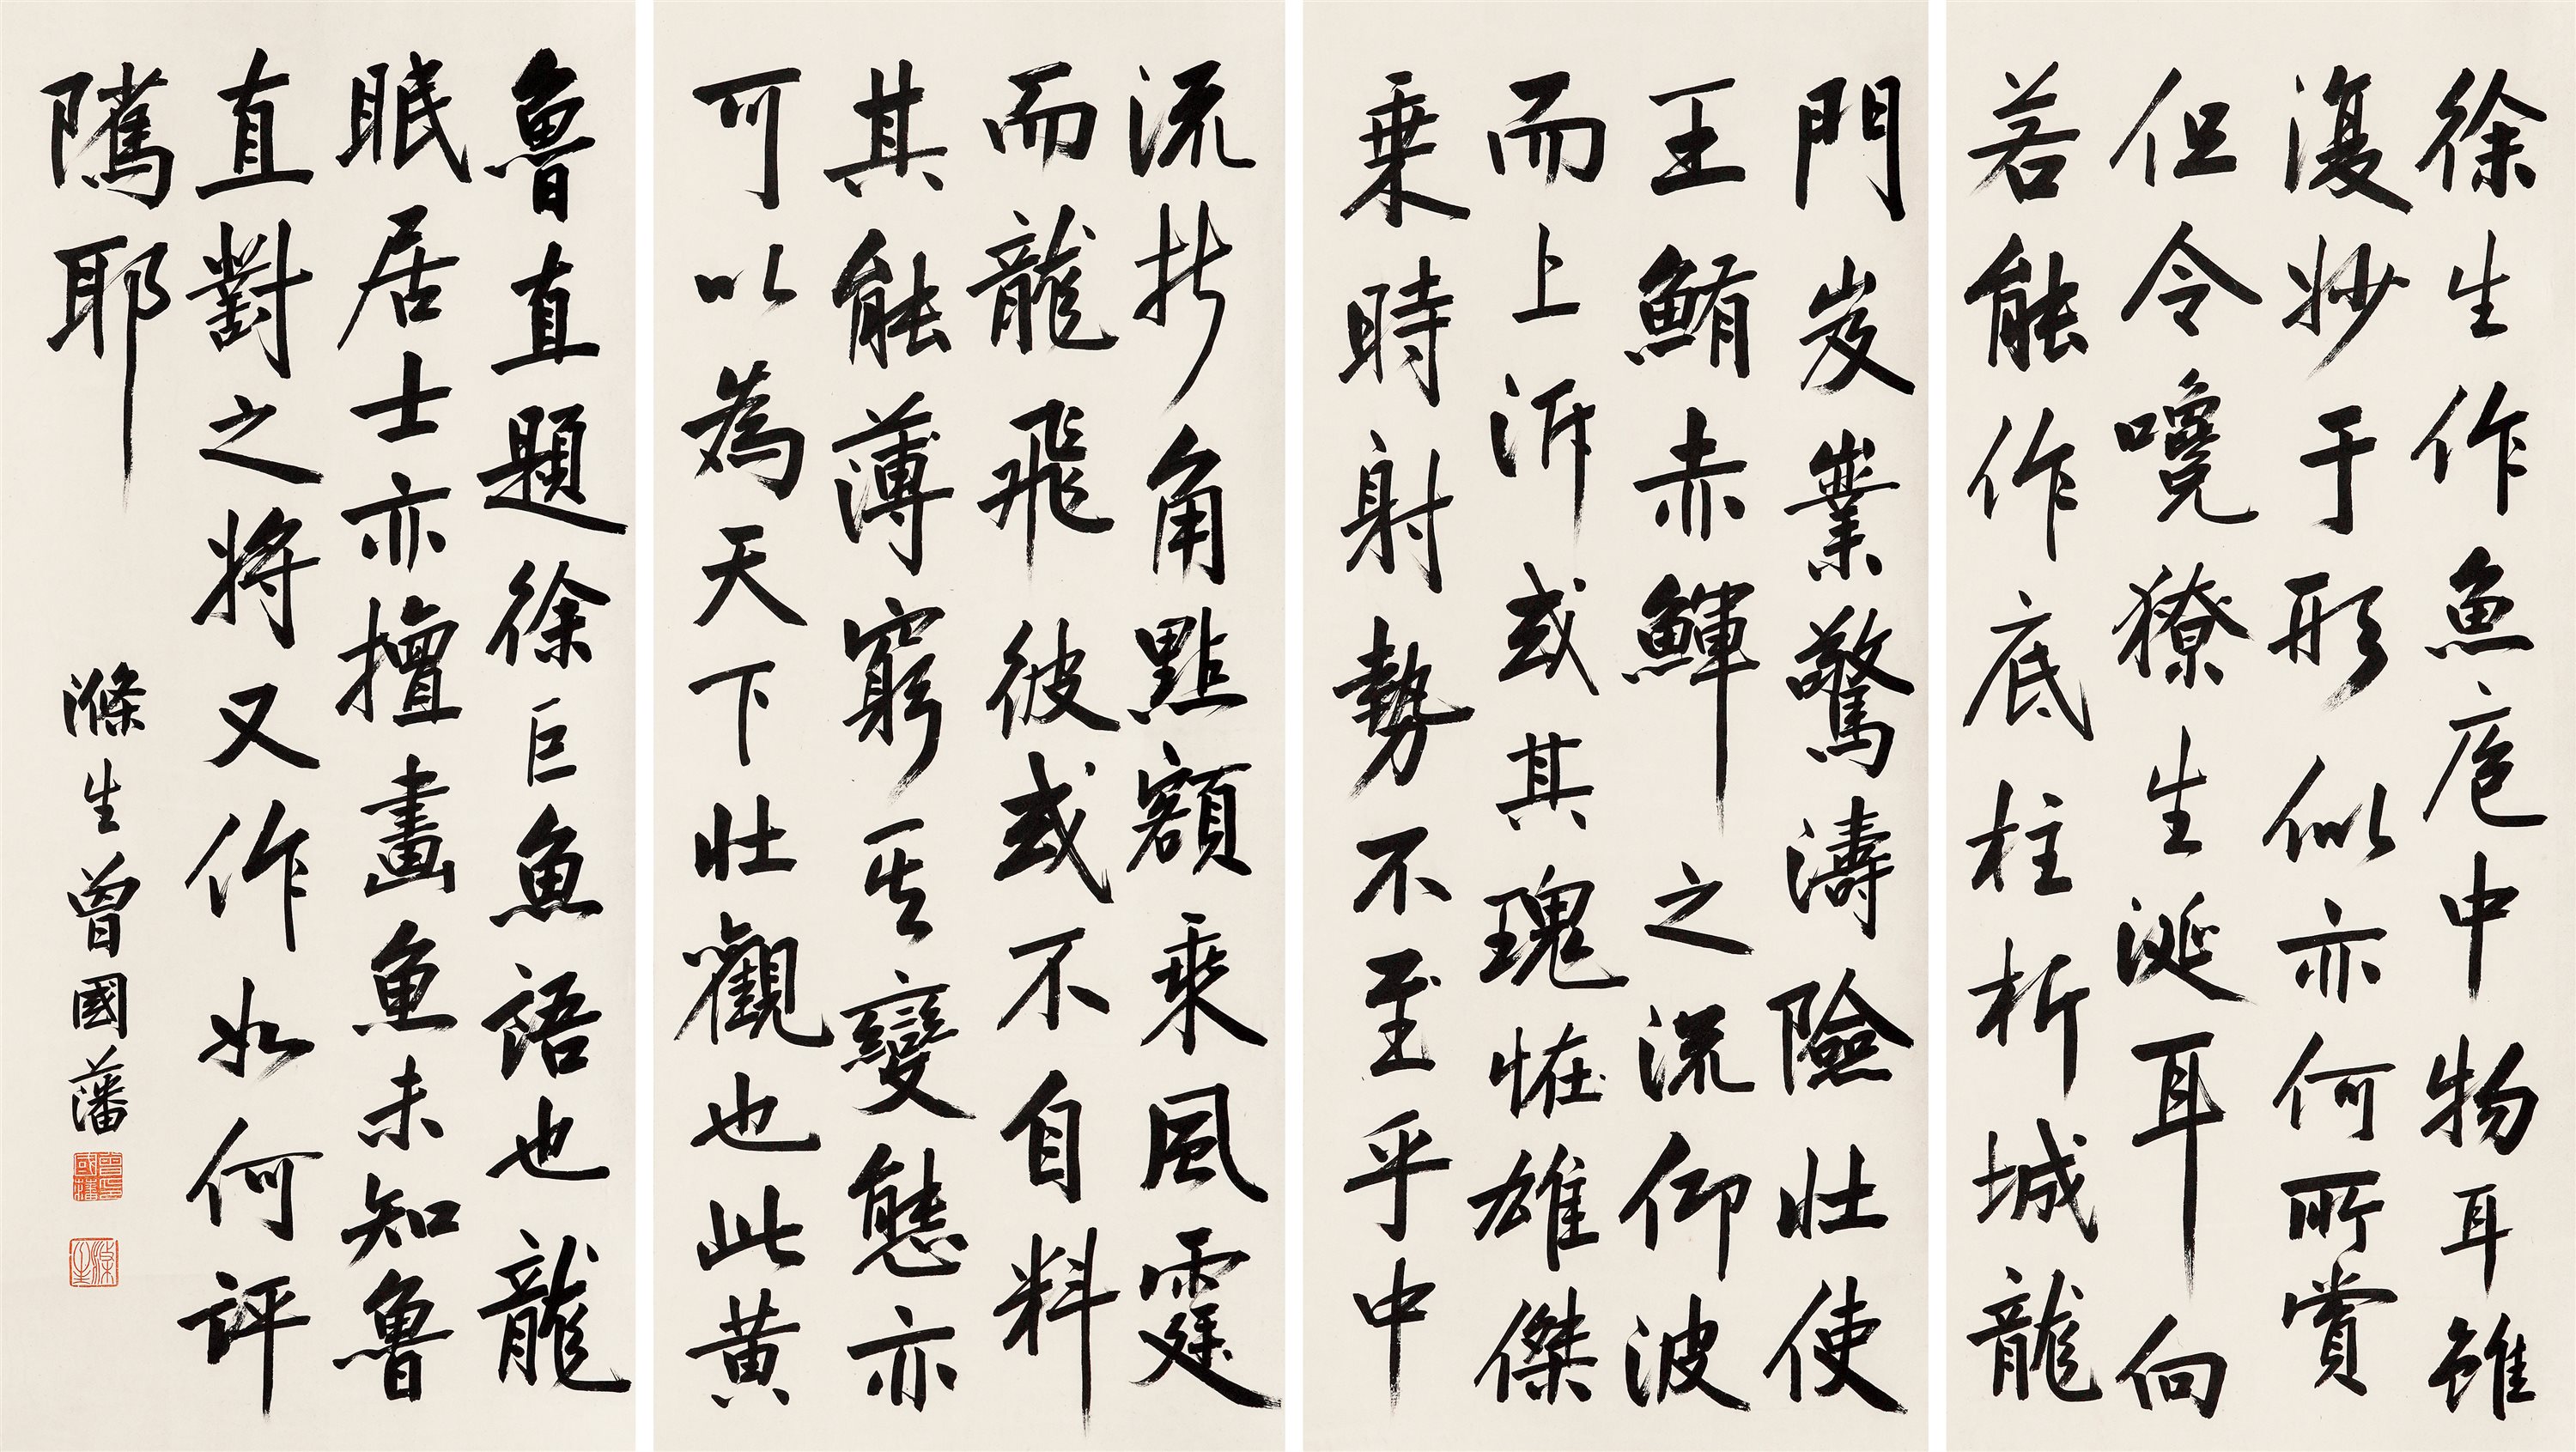 徐生作魚庖中物耳雖
復妙于形似亦何所賞
但令嚵獠生涎耳向
若能作底柱析城龍
門岌嶪驚濤險壯使
王鮪赤鯶之流仰波
而上泝或其瑰怪雄傑
乘時射勢不至乎中
流折角點額乘風霆
而龍飛彼或不自料
其能薄窮其變態亦
可以為天下壯觀也此黄
魯直題徐巨魚語也龍
眠居士亦擅畫魚未知魯
直對之將又作如何評
隲耶
滌生曾國藩